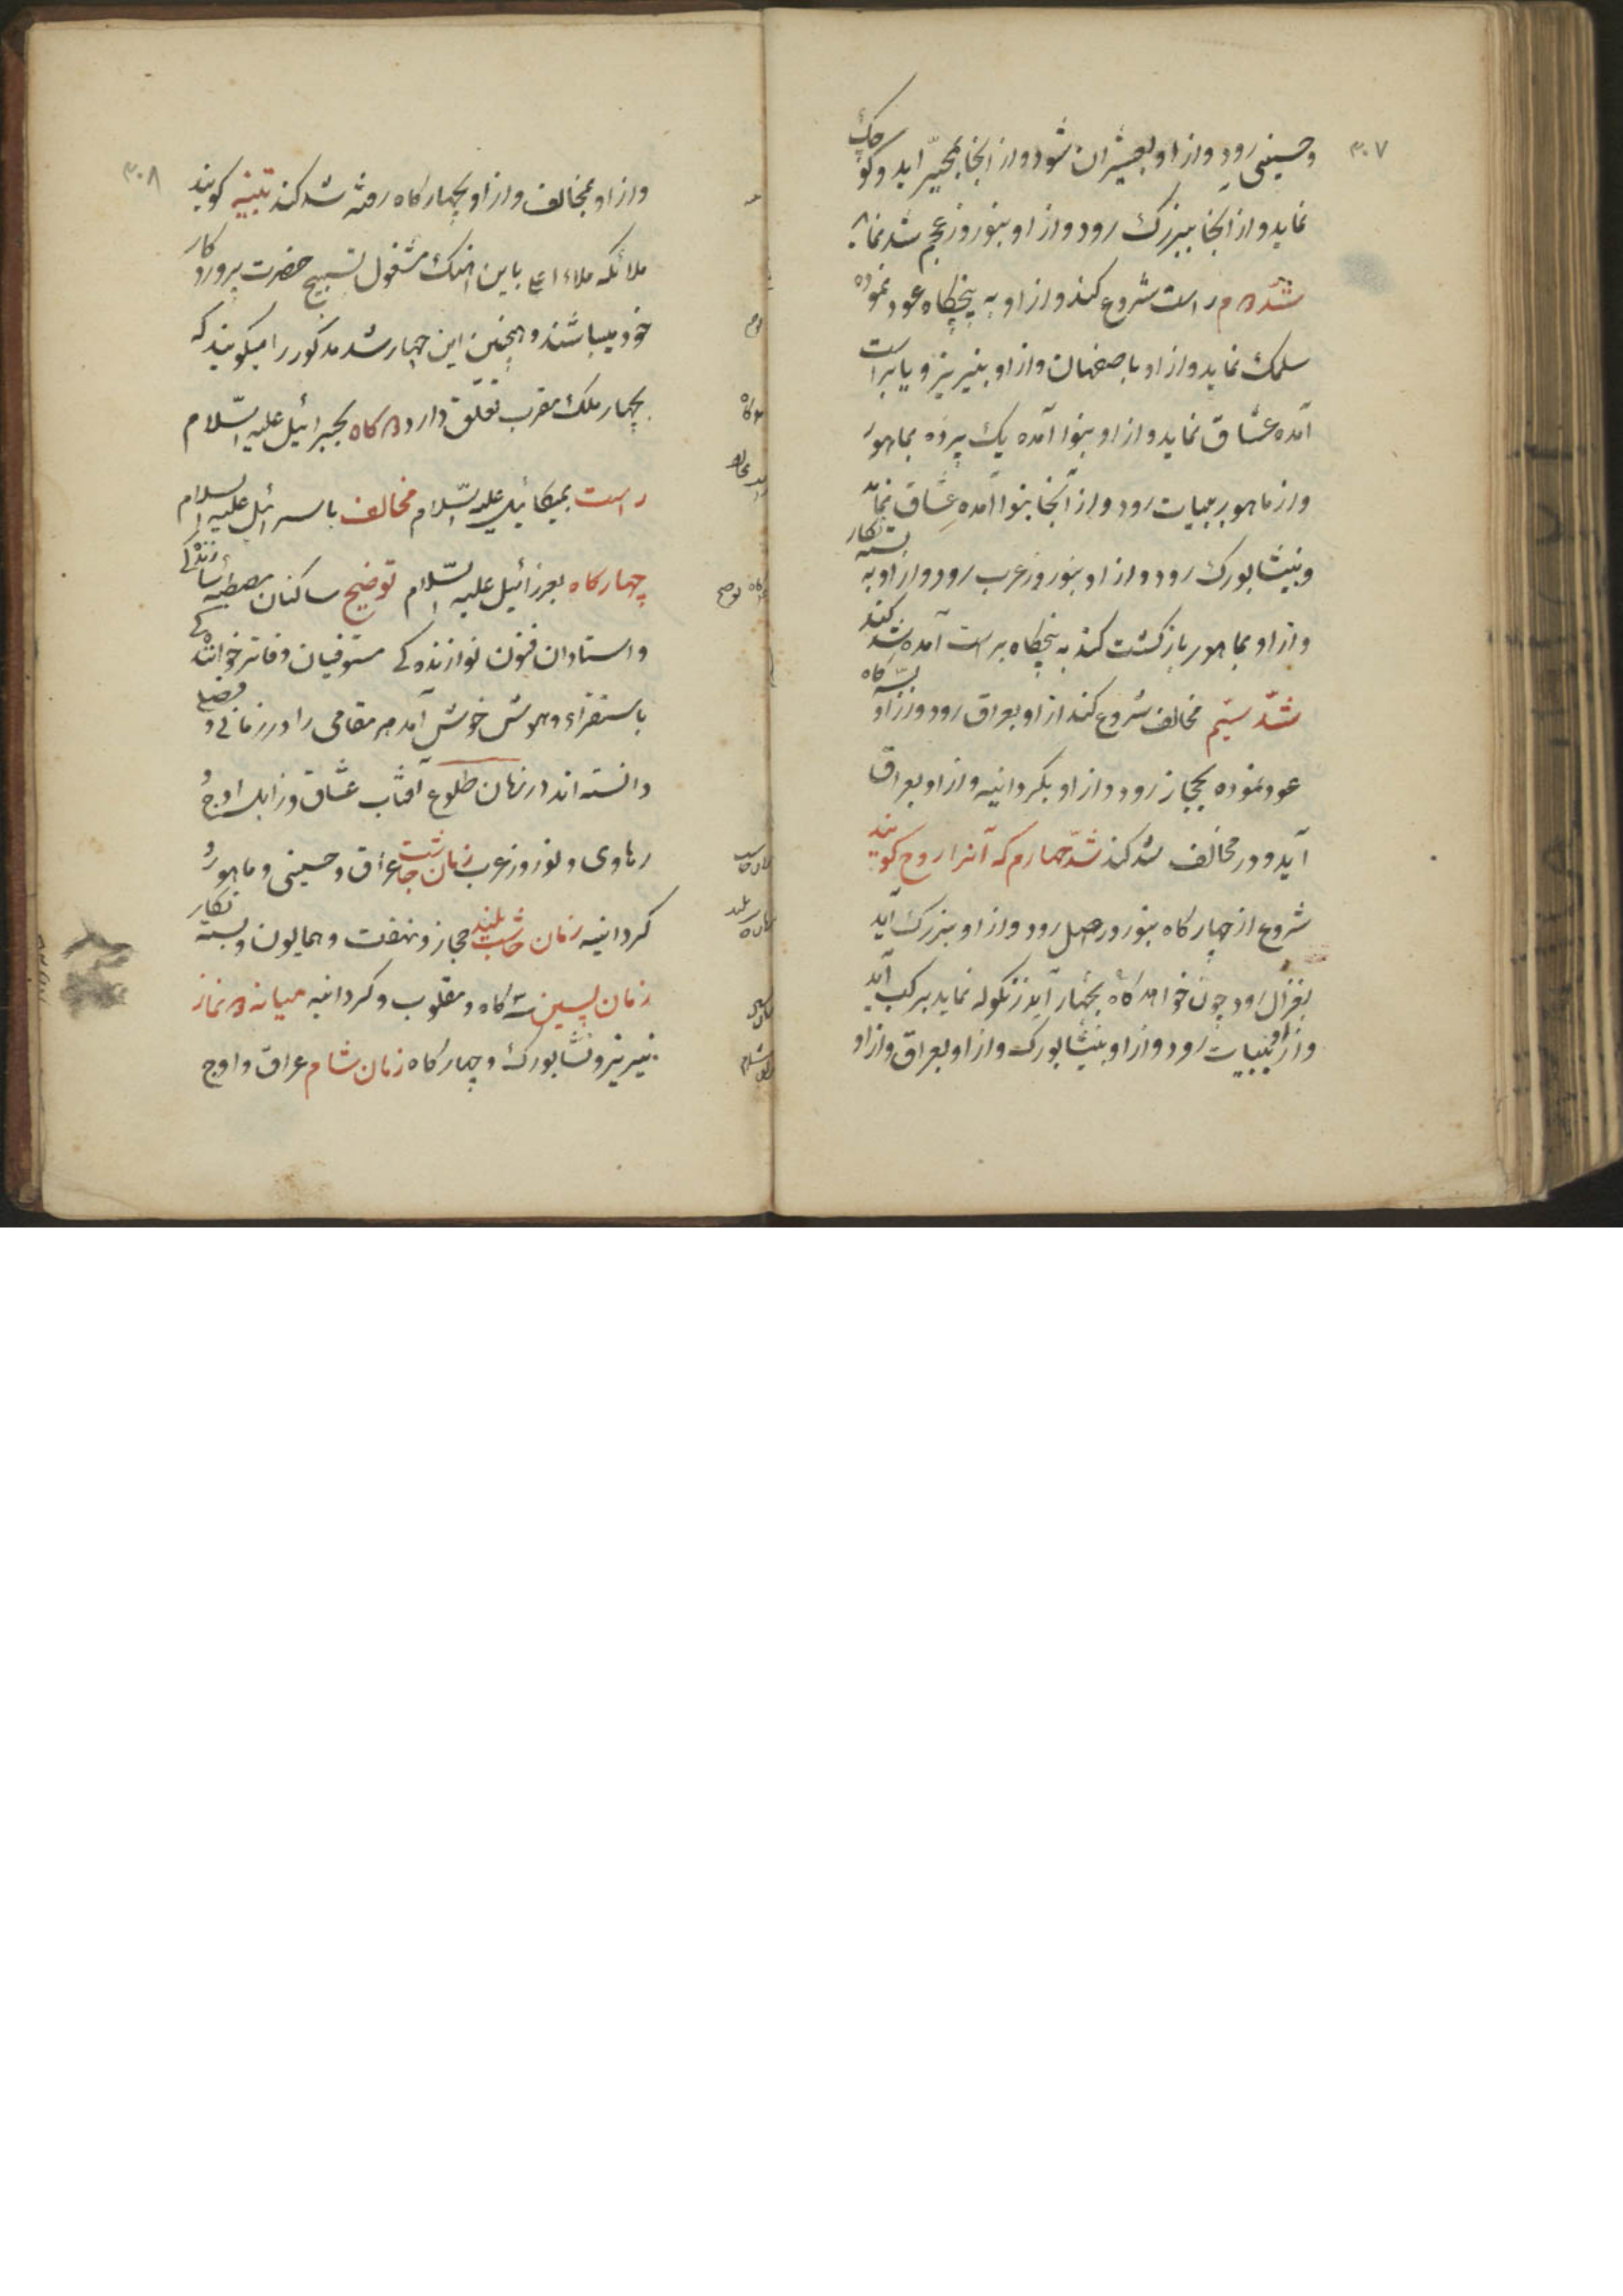 ۳۰۷
و حسینی رود و از او بعیشران شود و از انجا بمحیّر اید و کوچک
نماید و از انجا ببزرک رود و از او بنوروز عجم شد نماید
شد دوم راست شروع کند و از او به پنجکاه عود نموده
سلمک نماید و از او باصفهان و از او بنیریز و یا براست
آمده عشاق نماید و از او بنوا آمده یک پرده بماهور
و از ماهور ببیات رود و از آنجا بنوا آمده عشاق نماید
و بنیشابورک رود و از او بنوروز عرب رود و از او به بسته نکار
و از او بماهور بازکشت کند به پنجکاه براست آمده شد کند
شدّ سیّم مخالف شروع کند از او بعراق رود و از او بسه کاه
عود نموده بحجاز رود و از او بکردانیه و از او بعراق
آید و در مخالف شد کند شدّ چهارم که آنرا روح کویند
شروع از چهار کاه بنوروز اصل رود و از او ببزرک آید
بغزال رود چون خواهد کاه بچهار آید زنکوله نماید برکب آید
و از او ببیات رود و از او بنیشابورک و از او بعراق و از او
۳۰۸
و از او بمخالف و از او بچهار کاه رفته شد کند تبنیه کویند
ملائکه ملاء اعلی باین اهنک مشغول تسبیح حضرت پروردکار
خود میباشند و همچنین این چهار شد مذکور را میکویند که
بچهار ملک مقرب تعلّق دارد دوکاه بجبرائیل علیه السّلام
راست بمیکائیل علیه السّلام مخالف باسرائیل علیه السلام
چهارکاه بعزرائیل علیه السّلام توضیح ساکنان مصطبه سازندکی
و استادان فنون نوازنده کی مستوفیان دفاتر خوانندکی
باستقراء و هوش خوش آمد هر مقامی را در زمانی و فصلی
دانسته اند از زمان طلوع آفتاب عشاق و زابل و اوج و
رهاوی و نوروز عرب زمان چاشت عراق و حسینی و ماهور و
کردانیه زمان چاشت بلند حجاز و نهفت و همایون و بسته نکار
زمان پسین سه کاه و مقلوب و کردانیه میانه دو نماز
نیریز و نشابورک و چهارکاه زمان شام عراق و اوج